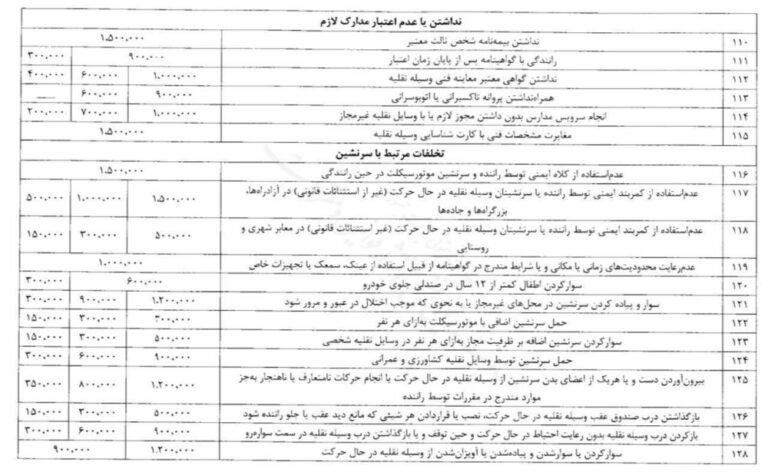 نداشتن یا عدم اعتبار مدارک لازم
۱۱۰ نداشتن بیمه‌نامه شخص ثالث معتبر ۱،۵۰۰،۰۰۰
۱۱۱ رانندگی با گواهینامه پس از پایان زمان اعتبار ۹۰۰،۰۰۰ ۳۰۰،۰۰۰
۱۱۲ نداشتن گواهی معتبر معاینه فنی وسیله نقلیه ۱،۰۰۰،۰۰۰ ۶۰۰،۰۰۰ ۴۰۰،۰۰۰
۱۱۳ همراه‌نداشتن پروانه تاکسیرانی یا اتوبوسرانی ۹۰۰،۰۰۰ ۶۰۰،۰۰۰ ـــ
۱۱۴ انجام سرویس مدارس بدون داشتن مجوز لازم یا با وسایل نقلیه غیرمجاز ۱،۰۰۰،۰۰۰ ۷۰۰،۰۰۰ ۲۰۰،۰۰۰
۱۱۵ مغایرت مشخصات فنی با کارت شناسایی وسیله نقلیه ۱،۵۰۰،۰۰۰
تخلفات مرتبط با سرنشین
۱۱۶ عدم‌استفاده از کلاه ایمنی توسط راننده و سرنشین موتورسیکلت در حین رانندگی ۱،۵۰۰،۰۰۰
۱۱۷ عدم‌استفاده از کمربند ایمنی توسط راننده یا سرنشینان وسیله نقلیه در حال حرکت (غیر از استثنائات قانونی) در آزادراه‌ها، ۱،۵۰۰،۰۰۰ ۱،۰۰۰،۰۰۰ ۵۰۰،۰۰۰
بزرگراه‌ها و جاده‌ها
۱۱۸ عدم‌استفاده از کمربند ایمنی توسط راننده یا سرنشینان وسیله نقلیه در حال حرکت (غیر استثنائات قانونی) در معابر شهری و ۵۰۰،۰۰۰ ۳۰۰،۰۰۰ ۱۵۰،۰۰۰
روستایی
۱۱۹ عدم‌رعایت محدودیت‌های زمانی یا مکانی و یا شرایط مندرج در گواهینامه از قبیل استفاده از عینک، سمعک یا تجهیزات خاص ۱،۰۰۰،۰۰۰
۱۲۰ سوارکردن اطفال کمتر از ۱۲ سال در صندلی جلوی خودرو ۶۰۰،۰۰۰ ۳۰۰،۰۰۰
۱۲۱ سوار و پیاده کردن سرنشین در محل‌های غیرمجاز یا به نحوی که موجب اختلال در عبور و مرور شود ۱،۲۰۰،۰۰۰ ۹۰۰،۰۰۰ ۳۰۰،۰۰۰
۱۲۲ حمل سرنشین اضافی با موتورسیکلت به‌ازای هر نفر ۳۰۰،۰۰۰ ۳۰۰،۰۰۰ ۱۵۰،۰۰۰
۱۲۳ سوارکردن سرنشین اضافه بر ظرفیت مجاز به‌ازای هر نفر در وسایل نقلیه شخصی ۵۰۰،۰۰۰ ۳۰۰،۰۰۰ ۱۵۰،۰۰۰
۱۲۴ حمل سرنشین توسط وسایل نقلیه کشاورزی و عمرانی ۹۰۰،۰۰۰ ۶۰۰،۰۰۰ ۳۰۰،۰۰۰
۱۲۵ بیرون‌آوردن دست و یا هریک از اعضای بدن سرنشین از وسیله نقلیه در حال حرکت یا انجام حرکات نامتعارف یا ناهنجار به‌جز ۱،۲۰۰،۰۰۰ ۸۰۰،۰۰۰ ۳۵۰،۰۰۰
موارد مندرج در مقررات توسط راننده
۱۲۶ بازگذاشتن درب صندوق عقب وسیله نقلیه در حال حرکت، نصب یا قراردادن هر شیئی که مانع دید عقب یا جلو راننده شود ۵۰۰،۰۰۰ ۳۰۰،۰۰۰ ۱۵۰،۰۰۰
۱۲۷ بازکردن درب وسیله نقلیه بدون رعایت احتیاط در حال حرکت و حین توقف و یا بازگذاشتن درب وسیله نقلیه در سمت سواره‌رو ۹۰۰،۰۰۰ ۶۰۰،۰۰۰ ۳۰۰،۰۰۰
۱۲۸ سوارکردن یا سوارشدن و پیاده‌شدن یا آویزان‌شدن از وسیله نقلیه در حال حرکت ۱،۲۰۰،۰۰۰ ۹۰۰،۰۰۰